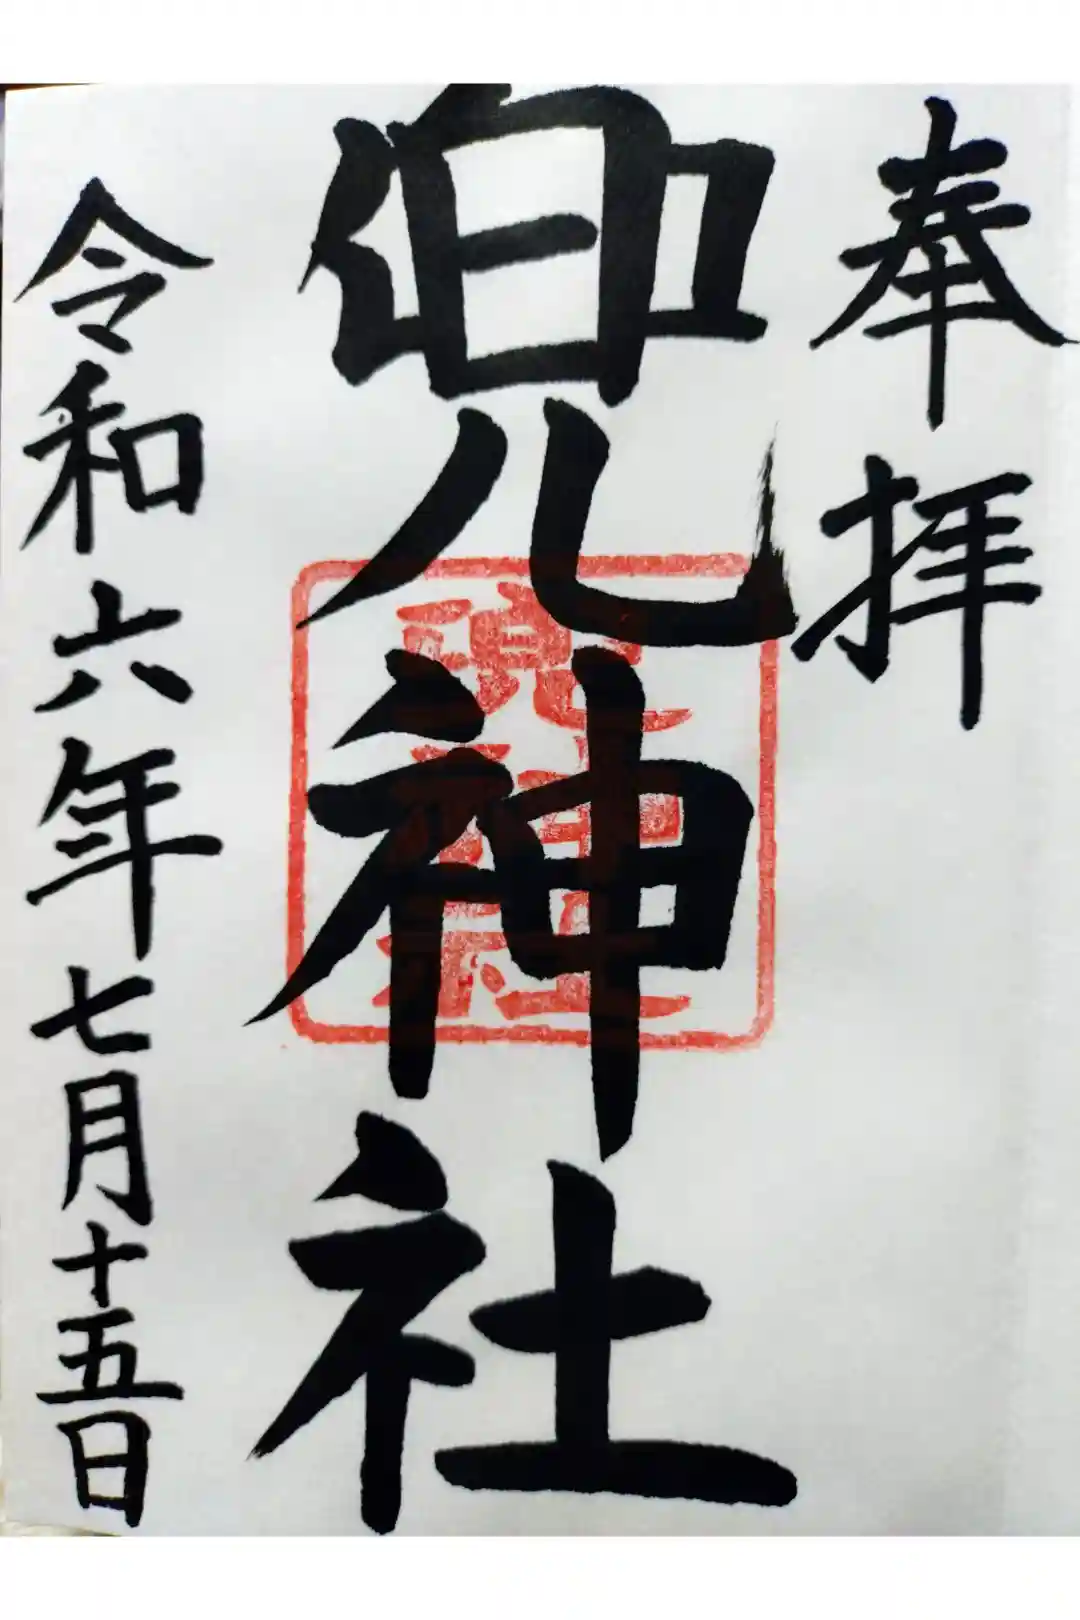 奉拝
兜神社
令和六年七月十五日
兜神社